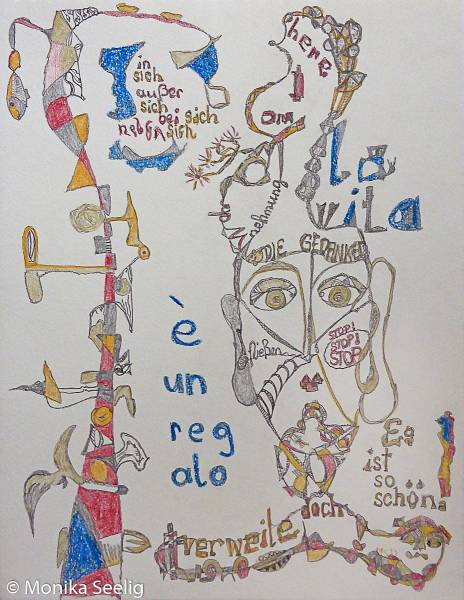 in
sich
außer
sich
bei sich
neben sich
here
I
am
la
vita
Wahrnehmung
DIE GEDANKEN
fließen
STOP!
STOP!
STOP
è
un
reg
alo
Es
ist
so
schön!
verweile doch
© Monika Seelig